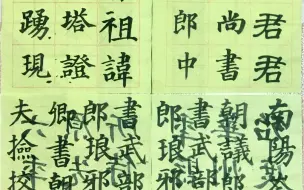 君君
尚書
郎中
祖諱
塔證
踴現
南陽
朝議郎
書武部
郎琅邪
書武部
郎琅邪
卿書朝
夫撿挍